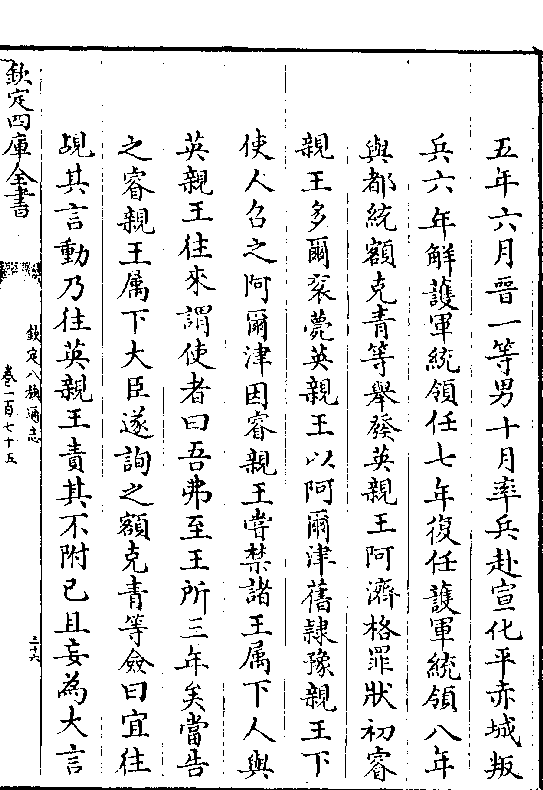 五年六月晋一等男十月率兵赴宣化平赤城叛
兵六年解護軍統領任七年復任護軍統領八年
與都統額克青等舉發英親王阿濟格罪狀初睿
親王多爾衮薨英親王以阿爾津舊隷豫親王下
使人召之阿爾津因睿親王嘗禁諸王属下人與
英親王往來謂使者曰吾弗至王所三年矣當告
之睿親王属下大臣遂詢之額克青等僉曰宜往
覘其言動乃往英親王責其不附己且妄為大言
欽定四庫全書
欽定八旗通志
卷一百七十五
三十六